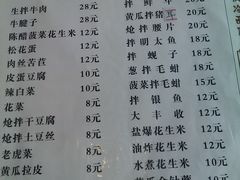 生拌牛肉 28元
牛腱子 28元
陈醋菠菜花生米 12元
松花蛋 12元
肉丝苦苣 12元
皮蛋豆腐 10元
辣白菜 10元
花菜 8元
炝拌干豆腐 8元
炝拌土豆丝 8元
老虎菜 8元
黄瓜拉皮 8元
拌鲜
黄瓜拌猪耳 20元
炝拌腰片 20元
拌明太鱼 18元
拌蚬子 18元
葱拌毛蚶 18元
菠菜拌毛蚶 18元
拌银鱼 15元
大丰收 12元
盐爆花生米 12元
油炸花生米 12元
水煮花生米 10元
10元